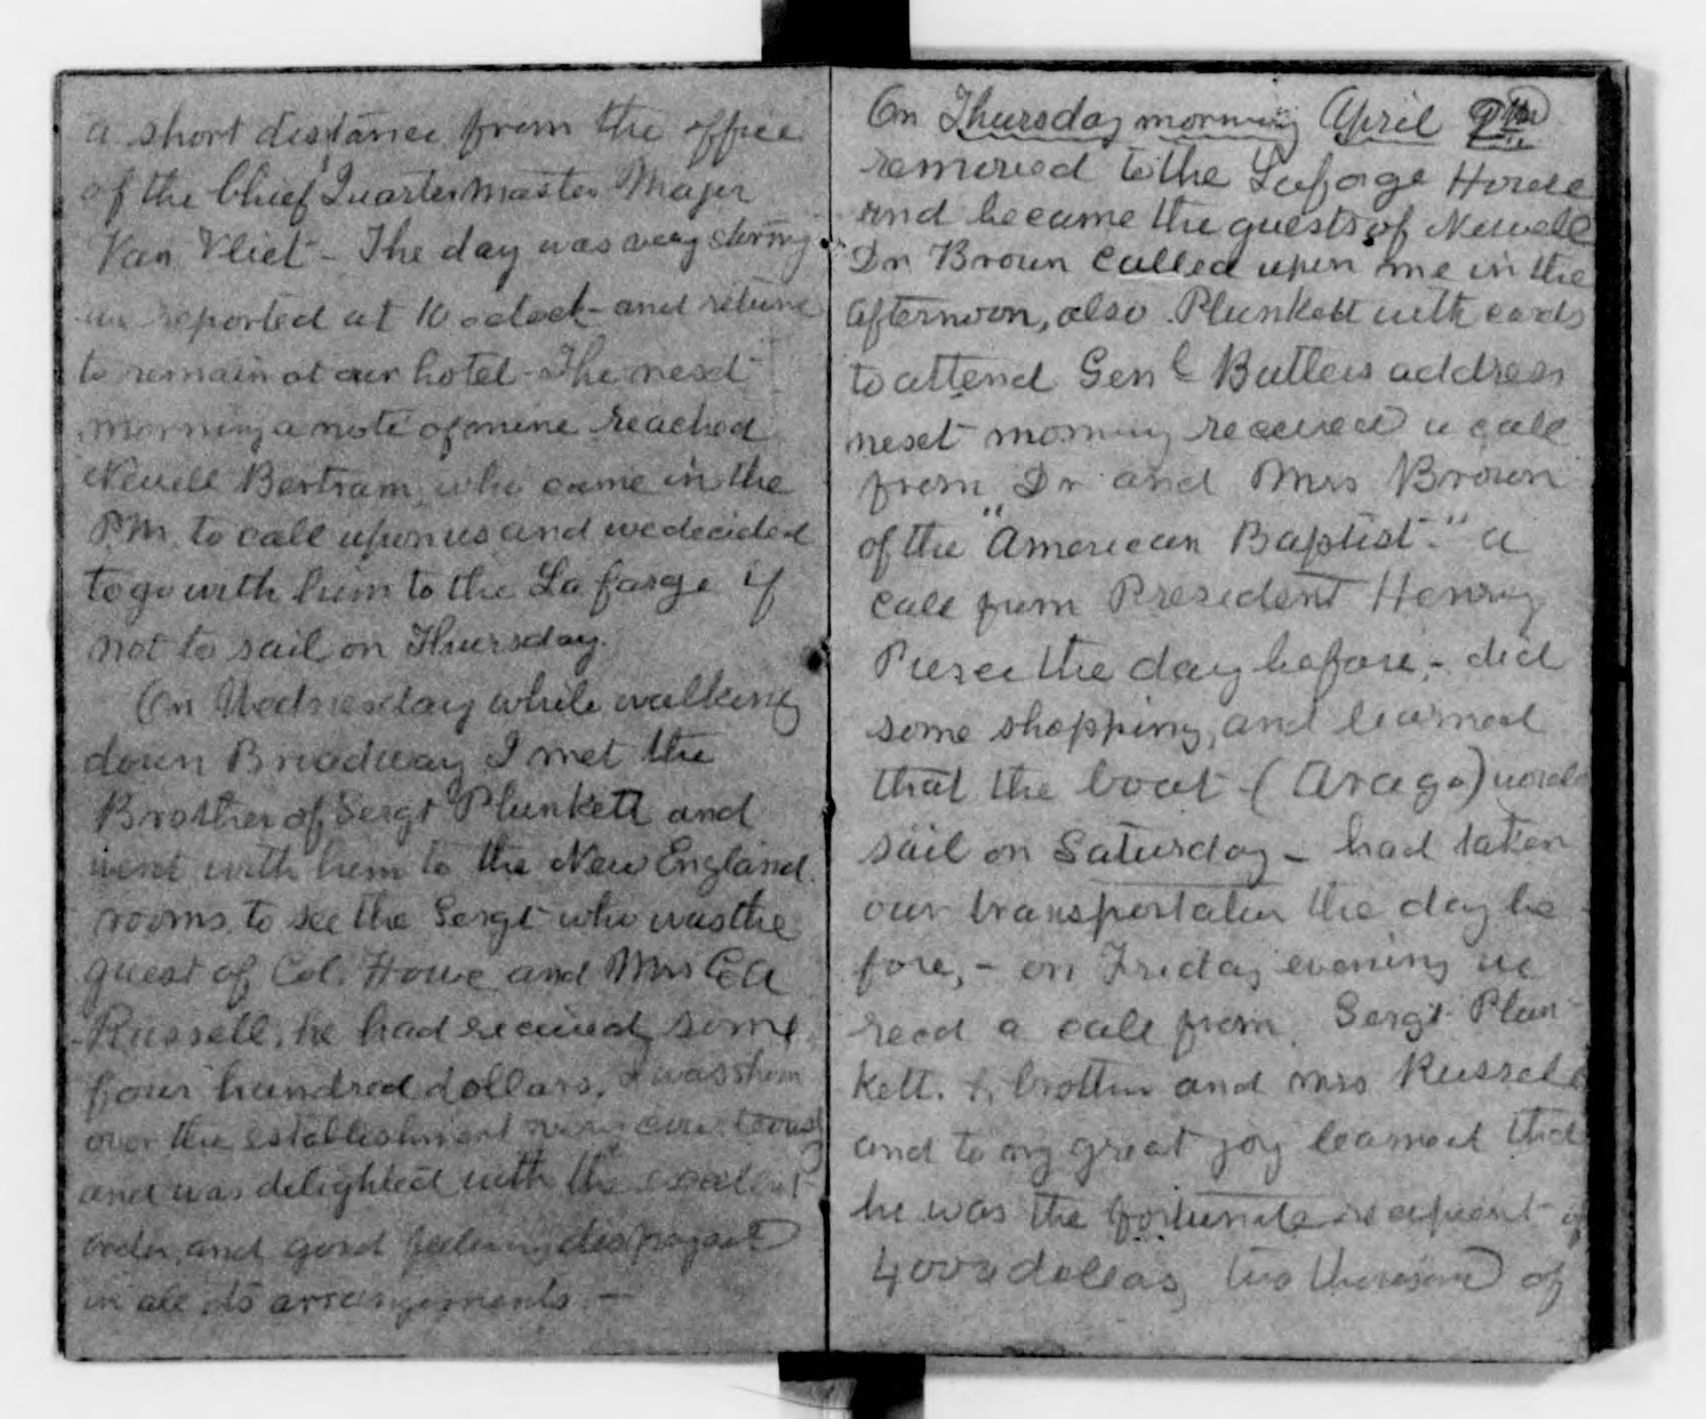 a short distance from the office
of the Chief Quartermaster Major
Van Vliet - The day was very stormy
we reported at 10 oclock - and returned
to remain at our hotel - The next
morning a note of mine reached
Newell Bertram, who came in the
P.M. to call upon us and we decided
to go with him to the La farge if
not to sail on Thursday.
On Wednesday while walking
down Broadway I met the
Brother of Sergt Plunkett and
went with him to the New England
rooms, to see the Sergt who was the
guest of Col. Howe and Mrs
Russell, he had received some
four hundred dollars. I was shown
over the establishment very
and was delighted with the excellent
order, and good feeling
in all its arrangements. -
On Thursday morning April 9th
removed to the Lafarge House
and became the guests of Newell
Dr Brown called upon me in the
afternoon, also Plunkett with cards
to attend Genl Butlers address
next morning received a call
from Dr and Mrs Brown
of the "American Baptist." a
call from President Henry
Pierce the day before, - did
some shopping, and learned
that the boat - (Arago) would
sail on Saturday - had taken
our transportation the day be
fore, - on Friday evening we
recd a call from Sergt Plun
kett. & brother and Mrs Russell
and to my great joy learned that
he was the fortunate recipient of
4000 dollars, two thousand of